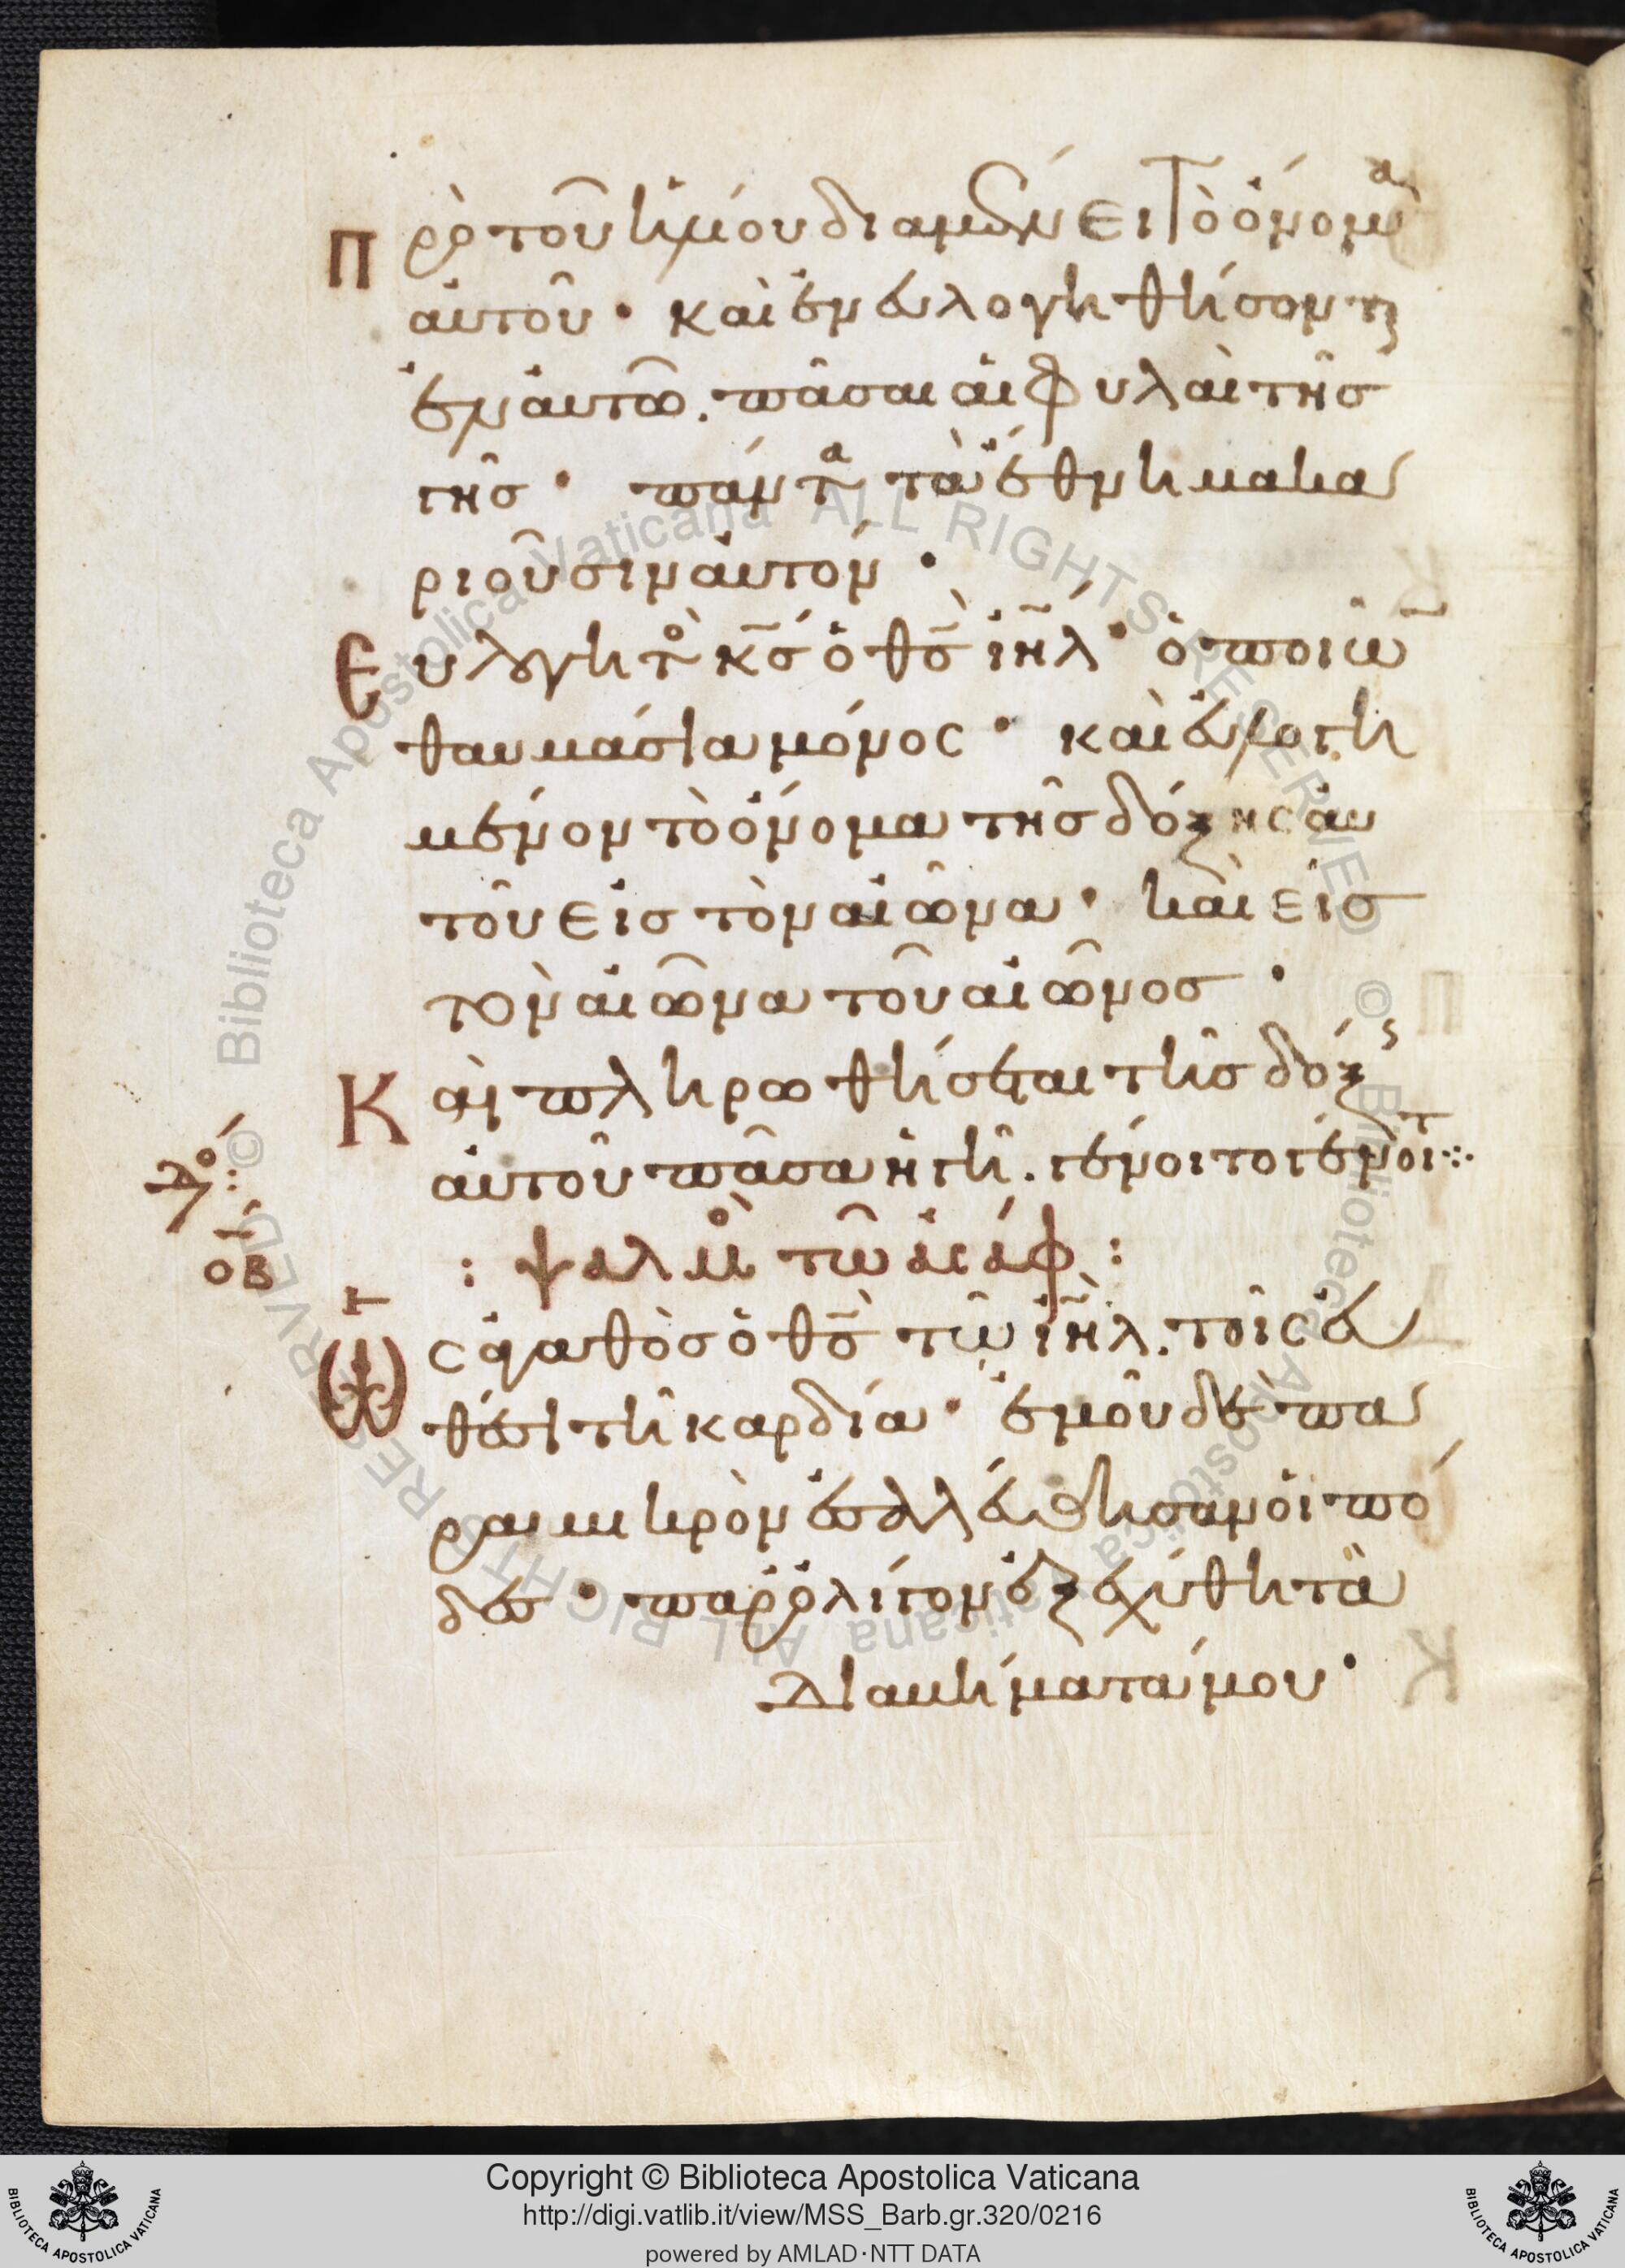 Πρὸ τοῦ ἡλίου διαμένει τὸ ὄνομα
αὐτοῦ · καὶ ἐνευλογηθήσονται
ἐν αὐτῶ. πᾶσαι αἱ φυλαὶ τῆσ
γῆσ · πάντα τὰ ἔθνη μακα
ριοῦσιν αὐτόν ·
Εὐλογητὸς κ̅σ̅ ὁ θ̅σ̅ ἰ̅η̅λ̅ · ὁ ποιῶν
θαυμάσια μόνος · καὶ εὐλογη
μένον τὸ ὄνομα τῆσ δόξης αὐ
τοῦ εἰσ τὸν αἰῶνα · καὶ εἰσ
τὸν αἰῶνα τοῦ αἰῶνοσ ·
Καὶ πληρωθήσεται τῆσ δόξης
αὐτοῦ πᾶσα ἡ γῆ. γένοιτο γένοιτο ⁘
ο̅β̅
: ψαλμὸς τῶ ἀσάφ :
Ὡς ἀγαθὸσ ὁ θ̅σ̅ τῶ ἰ̅η̅λ̅. τοῖς εὐ
θέσι τῆ καρδία · ἐμοῦ δὲ πα
ραμικρὸν ἐσαλεύθησαν οἱ πό
δεσ · παρ' ὀλίγον ἐξεχύθη τὰ
διαβήματά μου ·
Copyright © Biblioteca Apostolica Vaticana
http://digi.vatlib.it/view/MSS_Barb.gr.320/0216
powered by AMLAD·NTT DATA